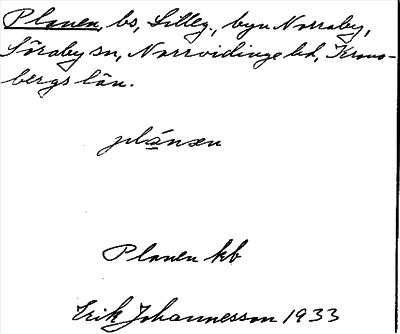 Planen, bs, Lilleg., byn Norraby,
Söraby sn, Norrvidinge hd, Krono-
bergs län.
plánən
Planen kb
Erik Johannesson 1933